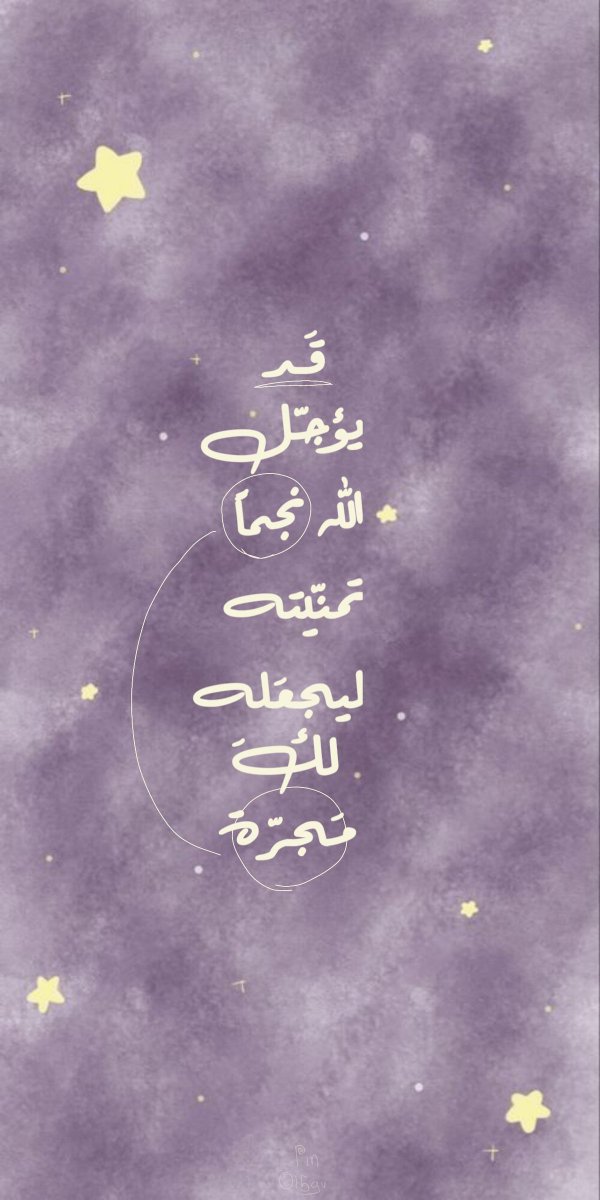 قَد
يؤجّل
الله نجماً
تمنّيته
ليجعَله
لكَ
مَجرّة
Pin